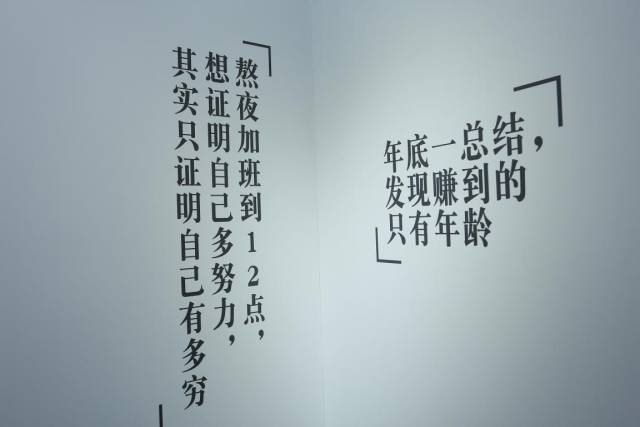 熬夜加班到12点，
想证明自己多努力，
其实只证明自己有多穷
年底一总结，
发现赚到的
只有年龄